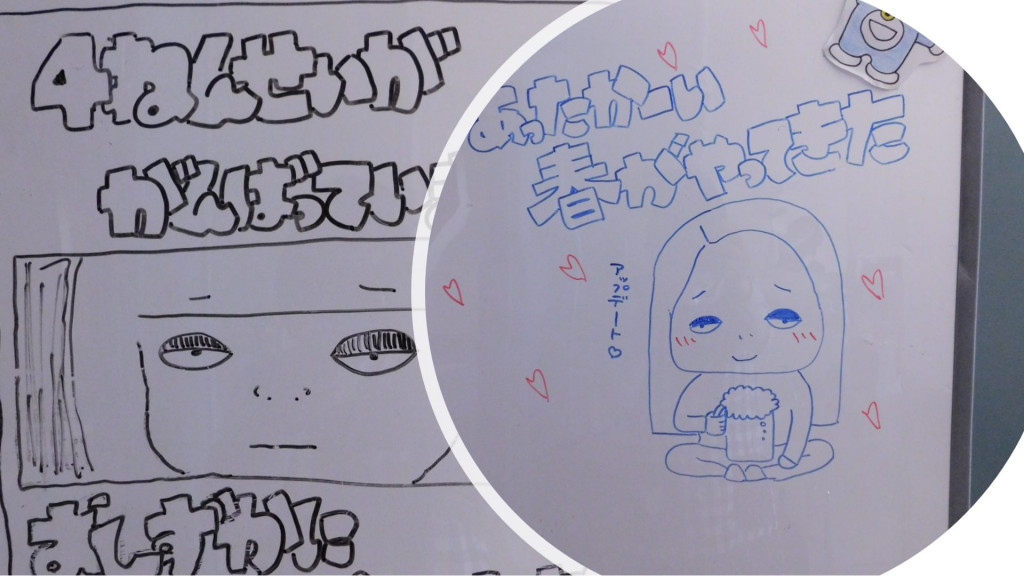 4ねんせいが
がんばってい
おしずかに
あったかーい
春がやってきた